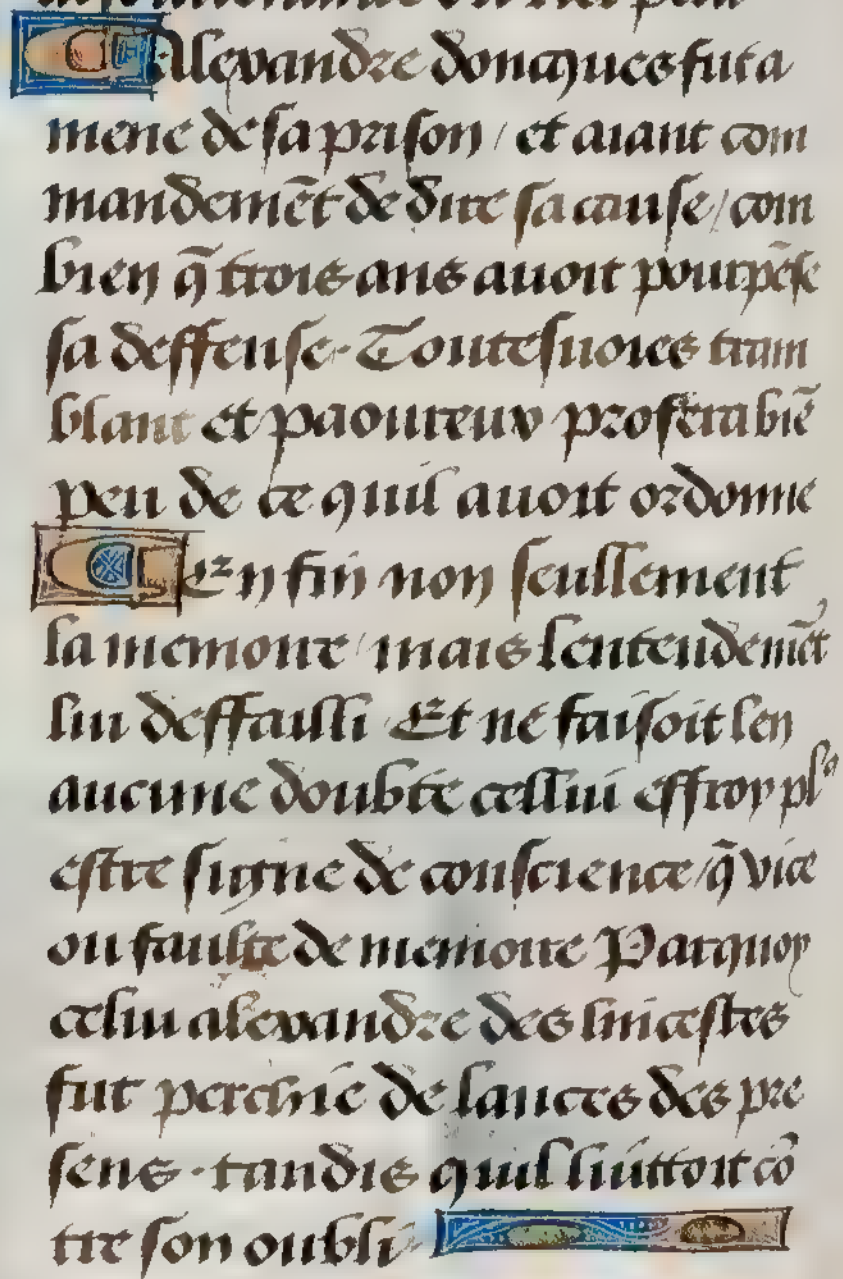 Alexandre doncques fut a
mene de sa prison / et aiant com
mandemēt de dire sa cause / com
bien q̄ trois ans avoit pourpēse
sa deffense. Toutesuoies tram
blant et paoureux profera biē
peu de ce quil avoit ordonne
En fin non seullement
la memoire / mais lentendemēt
lui deffailli. Et ne faisoit len
aucune doubte cellui effroy plꝰ
estre signe de conscience / q̄ vice
ou faulte de memoire Parquoy
celui alexandre des lincestes
fut perchie de lances des pre
sens. tandis quil luittoit cō
tre son oubli.